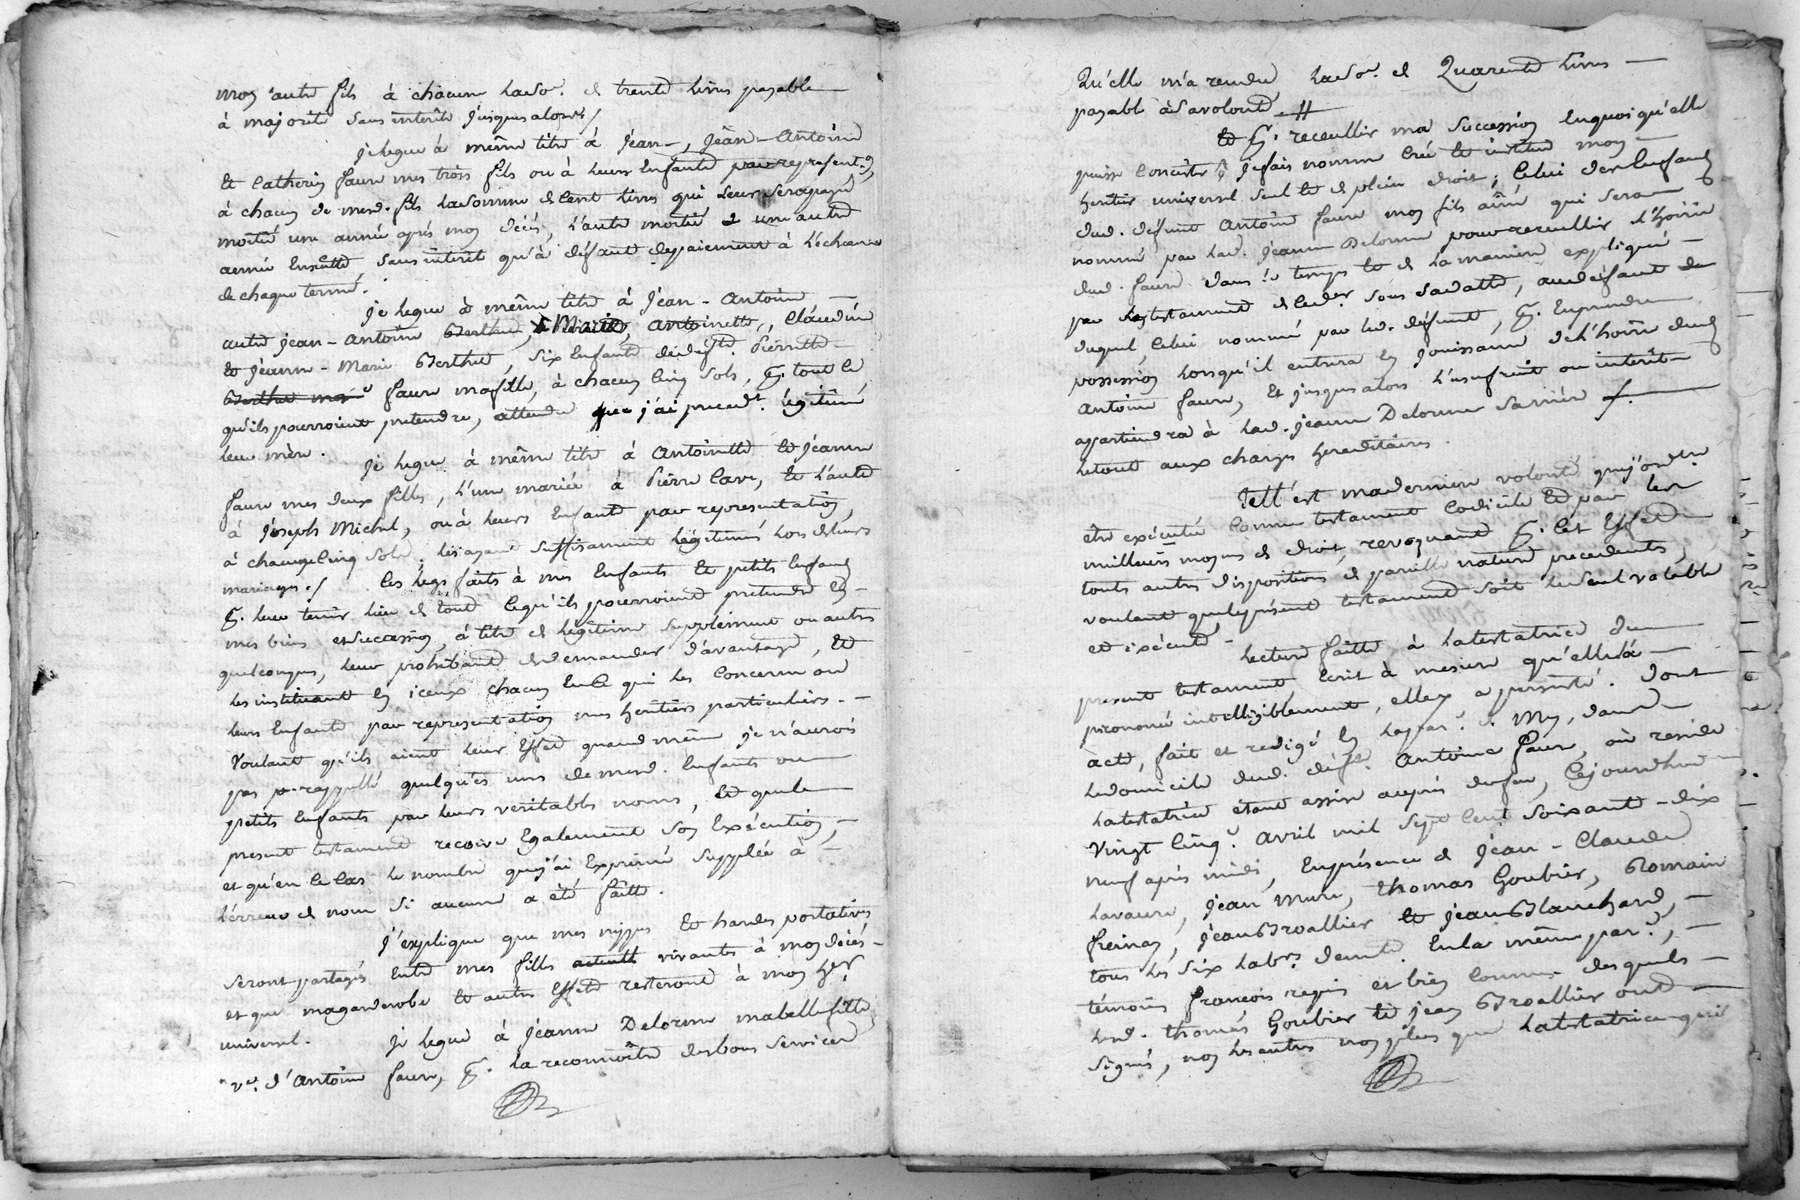 mon autre fils à chacun la so.e de trente livres payable
à majorité sans interêts jusques alors /
je legue à même titre à Jean-, Jean-Antoine
et Catherin faure mes trois fils ou à leurs Enfants par represent.on,
à chacun de mesd. fils la somme de Cent livres qui leur sera payé
moitié une année après mon décès, l'autre moitié une autre
année Ensuitte, sans interêt qu'à défaut de paiement à l'échéance
de chaque terme.
je legue à même titre à Jean-Antoine,
autre jean-antoine Berthet, Marie, Antoinette, Claudine
et Jeanne-Marie Berthet, six Enfants de déf.te Pierrette
faure ma fille, à chacun Cinq sols, p.r tout ce
qu'ils pourroient pretendre, attendu que j'ai preced.t légitimé
leur mère.
je legue à même titre à Antoinette et Jeanne
faure mes deux filles, l'une mariée à Pierre Cave, et l'autre
à Joseph Michel, ou à leurs Enfants par representation,
à chacune Cinq sols, les ayant suffisament légitimés lors de leurs
mariages. / Les legs faits à mes Enfants et petits Enfans
p.r leur tenir lieu de tout ce qu'ils pourroient pretendre En
mes biens et succession, à titre de légitime supplément ou autres
quelconques, leur prohibant de demander d'avantage, et
les instituant En iceux chacun En ce qui les Concerne ou
leurs Enfants par representation mes heritiers particuliers.
Voulant qu'ils aient leur Effet quand même je n'aurois
pas rappellé quelqu'es uns de mesd. Enfants ou
petits Enfants par leurs veritables noms, et que le
present testament recoive Egalement son Exécution,
et qu'en ce Cas le nombre que j'ai Exprimé Supplée à
l'erreur de nom si aucune a été faitte.
j'explique que mes nippes et hardes portatives
seront partagés Entre mes filles vivantes à mon décès
et que ma garderobe et autres Effets resteront à mon her.
universel.
je legue à Jeanne Delorme ma belle fille
v.e d'Antoine faure, p.r la reconnoître des bons services
Qu'elle m'a rendu, la so.e de Quarante livres
payable à sa volonté. //
et p.r receuillir ma Succession En quoi qu'elle
puisse Consister, je fais nomme Créé et institue mon
heritier universel seul et de plein droit, Celui des Enfans
dud. défunt Antoine faure mon fils ainé qui sera
nommé par lad. Jeanne Delorme pour receuillir l'hoirie
dud. faure dans le temps et de la maniere expliquée
par le testament de Ced.er sous sa datte, au défaut
duquel, Celui nommé par led. défunt, p.r En prendre
possession lorsqu'il entrera En jouissance de l'hoirie dud.
Antoine faure, Et jusqu'alors l'usufruit ou interêt
apartiendra à lad. Jeanne Delorme
le tout aux charges hereditaires.
Telle est ma derniere volonté que j'ordonne
etre exécutée Comme testament Codicile et par les
meilleurs moyens de droit, revoquant p.r Cet Effet
touts autres dispositions de pareille nature precedentes,
voulant que le present testament soit le seul valable
et exécuté.
Lecture faitte à la testatrice du
present testament Ecrit à mesure qu'elle l'a
prononcé intelligiblement, elle y a persisté. Dont
acte, fait et redigé En lad par.e de
le domicile dud. déf.t Antoine faure, où reside
la testatrice étant assise auprès du feu, Cejourdhui
Vingt Cinq.e avril mil sept Cent soixante-dix
neuf après midi, En presence de Jean-Claude
Lavaure, Jean Mure, Thomas Goubier, Romain
freinay, Jean Broallier et Jean Blanchard,
tous les six lab.rs dem.t En la même par.e,
témoins francois requis et bien Connus desquels
led. Thomas Goubier et Jean Broallier ont
signés, non les autres non plus que la testatrice qui